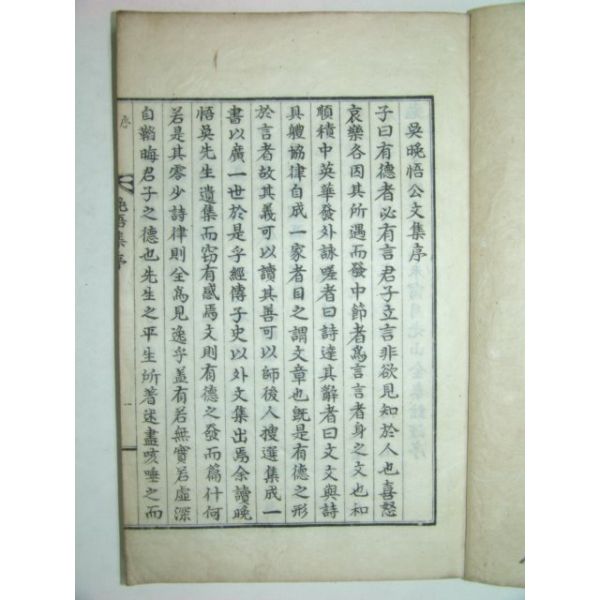 吳晩悟公文集序
子曰有德者必有言君子立言非欲見知於人也喜怒
哀樂各因其所遇而發中節者爲言言者身之文也和
順積中英華發外詠嗟者曰詩達其辭者曰文文與詩
具軆協律自成一家者目之謂文章也旣是有德之形
於言者故其義可以讀其善可以師後人搜選集成一
書以廣一世於是乎經傳子史以外文集出焉余讀晩
悟吳先生遺集而窃有感焉文則有德之發而篇什何
若是其零少詩律則全爲見逸乎盖有若無實若虛深
自韜晦君子之德也先生之平生所著述盡咳唾之而
晩悟集序
序